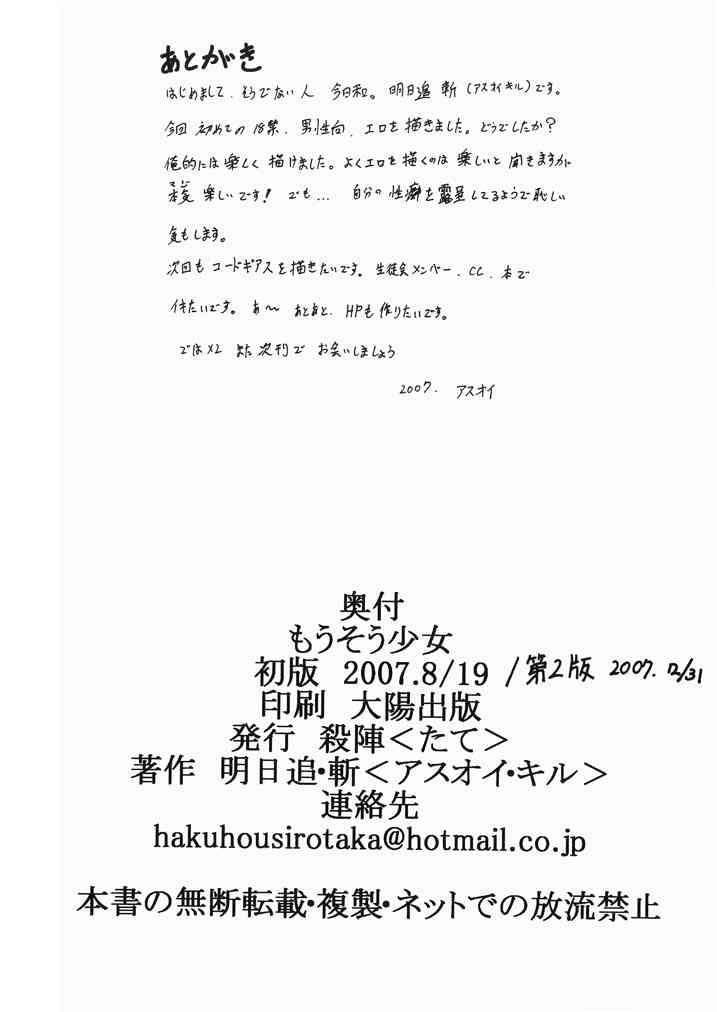 あとがき
はじめまして、そうでない人 今日和。明日追 斬(アスオイキル)です。
今回 初めての 18禁、男性向、エロを 描きました。どうでしたか?
俺的には楽しく 描けました。よくエロを 描くのは 楽しいと 聞きますが
楽しいです! でも… 自分の 性癖を露呈してるようで恥しい
気もします。
次回も コードギアスを描きたいです。生徒会メンバー、CC、本で
イキたいです。あ〜 あとあと、HPも作りたいです。
ではx2 また 次刊で お会いしましょう
2007. アスオイ
奥付
もうそう少女
初版 2007.8/19 /第2版 2007. 12/31
印刷 大陽出版
発行 殺陣<たて>
著作 明日追・斬<アスオイ・キル>
連絡先
hakuhousirotaka@hotmail.co.jp
本書の無断転載・複製・ネットでの放流禁止